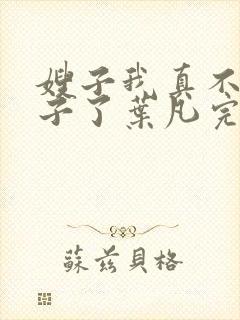 嫂子我真不
子了葉凡完
蘇茲貝格